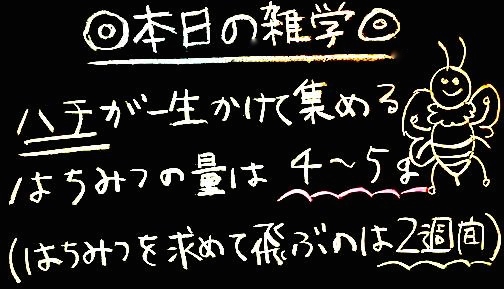 ◎本日の雑学◎
ハチが一生かけて集める
はちみつの量は 4〜5g
(はちみつを求めて飛ぶのは2週間)